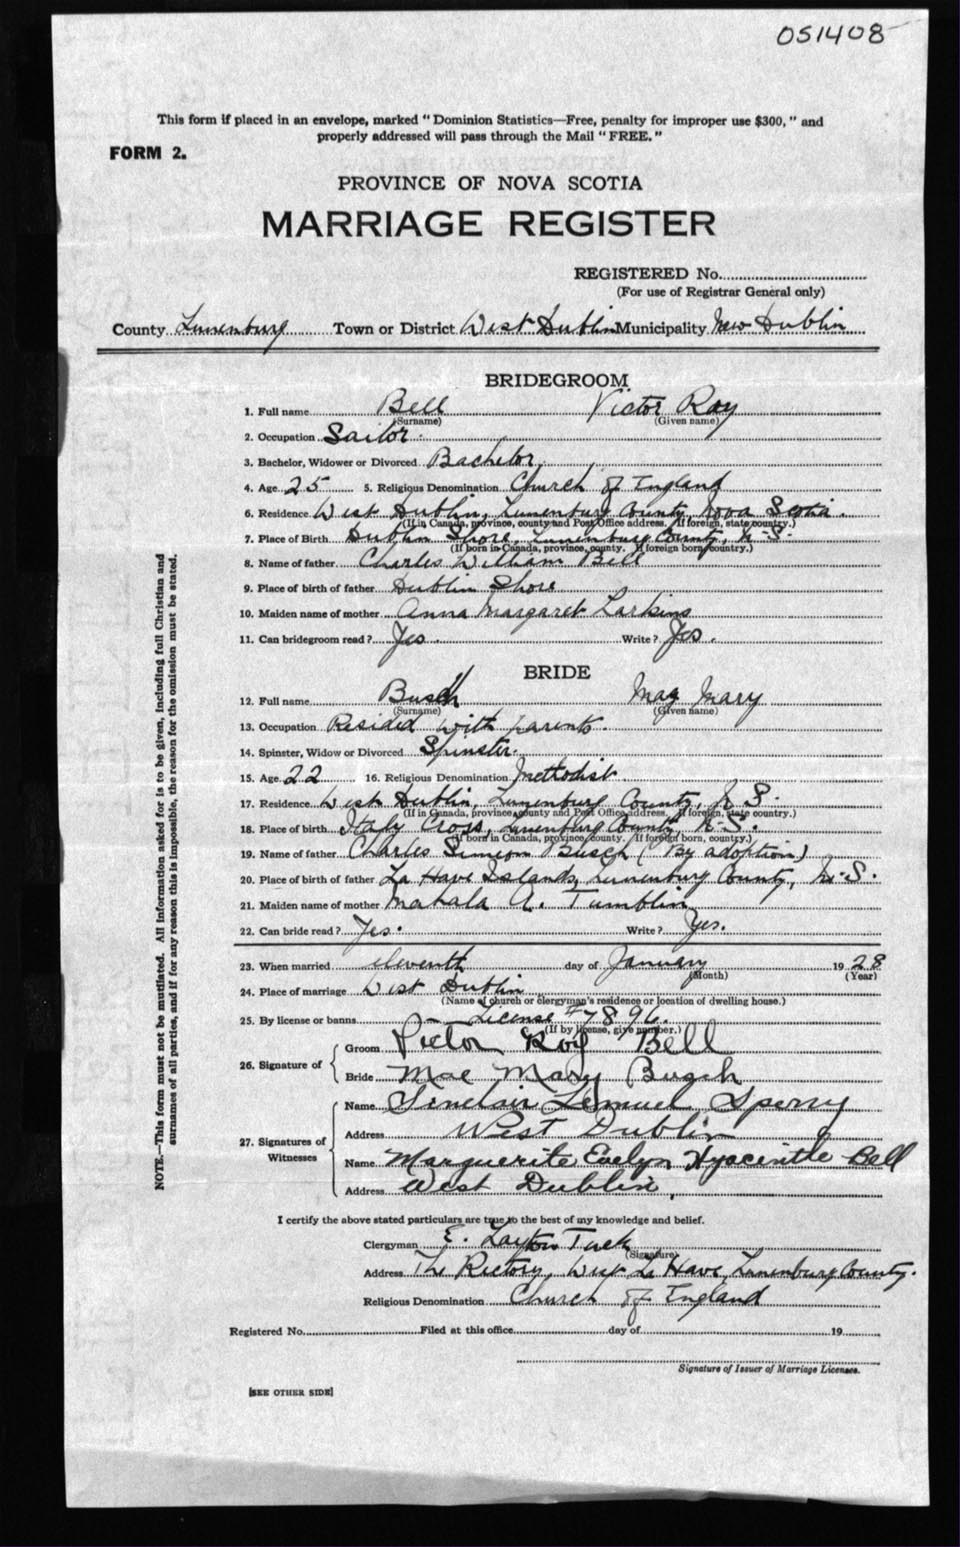 051408
This form if placed in an envelope, marked "Dominion Statistics—Free, penalty for improper use $300," and
properly addressed will pass through the Mail "FREE."
FORM 2.
PROVINCE OF NOVA SCOTIA
MARRIAGE REGISTER
REGISTERED No.
(For use of Registrar General only)
County Lunenburg Town or District West Dublin Municipality New Dublin
BRIDEGROOM
1. Full name Bell Victor Roy
(Surname) (Given name)
2. Occupation Sailor.
3. Bachelor, Widower or Divorced Bachelor.
4. Age 25 5. Religious Denomination Church of England
6. Residence West Dublin, Lunenburg County, Nova Scotia.
(If in Canada, province, county and Post Office address. If foreign, state country.)
7. Place of Birth Dublin Shore, Lunenburg County, N.S.
(If born in Canada, province, county. If foreign born, country.)
8. Name of father Charles William Bell
9. Place of birth of father Dublin Shore
10. Maiden name of mother Anna Margaret Larkins
11. Can bridegroom read? Yes Write? Yes.
BRIDE
12. Full name Busch May Mary
(Surname) (Given name)
13. Occupation Resided with parents.
14. Spinster, Widow or Divorced Spinster.
15. Age 22 16. Religious Denomination Methodist
17. Residence West Dublin, Lunenburg County, N.S.
(If in Canada, province, county and Post Office address. If foreign, state country.)
18. Place of birth Italy Cross, Lunenburg County N.S.
(If born in Canada, province, county. If foreign born, country.)
19. Name of father Charles Simeon Busch (By adoption)
20. Place of birth of father La Have Islands, Lunenburg County, N.S.
21. Maiden name of mother Mahala A. Tumblin
22. Can bride read? Yes. Write? Yes.
23. When married eleventh day of January 1928
(Month) (Year)
24. Place of marriage West Dublin
(Name of church or clergyman's residence or location of dwelling house.)
25. By license or banns — License #7896.
(If by license, give number.)
26. Signature of
Groom Victor Roy Bell
Bride Mae Mary Busch
27. Signatures of Witnesses
Name Sinclair Lemuel Sperry
Address West Dublin
Name Marguerite Evelyn Hyacinthe Bell
Address West Dublin,
I certify the above stated particulars are true to the best of my knowledge and belief.
Clergyman E. Layton Tuck
(Signature)
Address The Rectory, West La Have, Lunenburg County.
Religious Denomination Church of England
Registered No. Filed at this office day of 19
Signature of Issuer of Marriage Licenses.
[SEE OTHER SIDE]
NOTE.—This form must not be mutilated. All information asked for is to be given, including full Christian and
surnames of all parties, and if for any reason this is impossible, the reason for the omission must be stated.